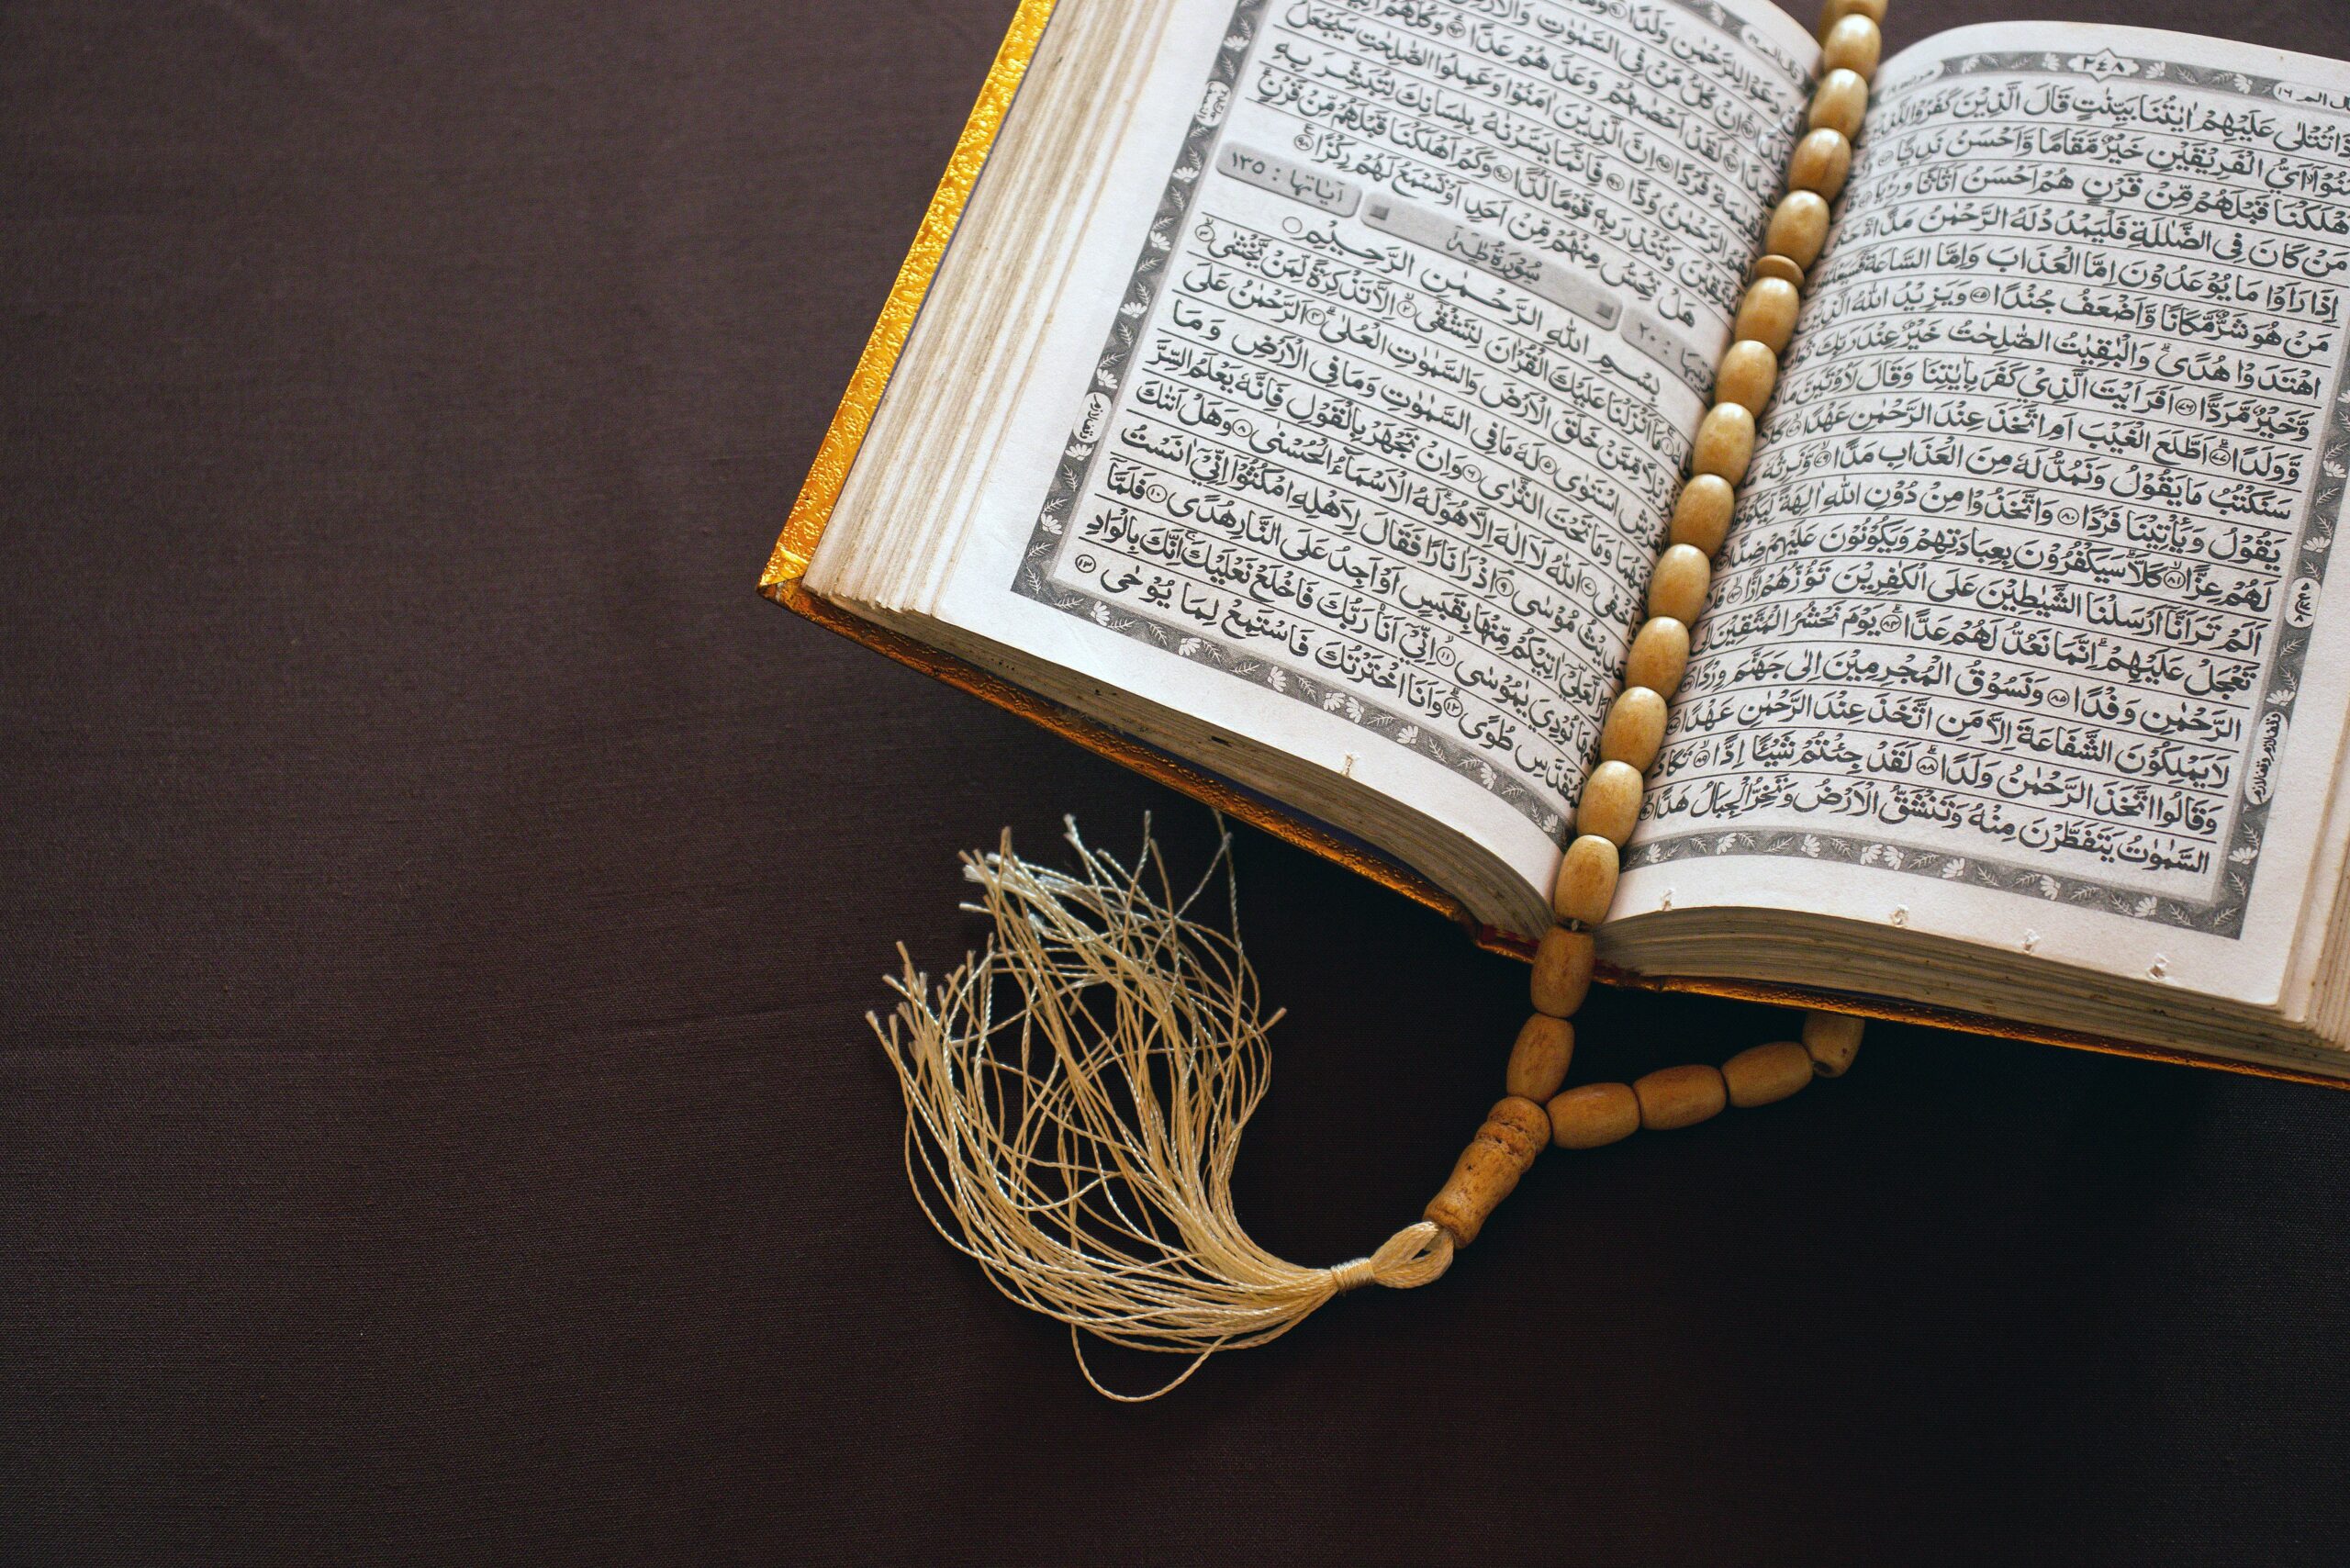 ٢٤٨
تُتْلٰى عَلَيْهِمْ اٰيٰتُنَا بَيِّنٰتٍ قَالَ الَّذِيْنَ كَفَرُوْا
اَيُّ الْفَرِيْقَيْنِ خَيْرٌ مَّقَامًا وَّاَحْسَنُ نَدِيًّا
اَهْلَكْنَا قَبْلَهُمْ مِّنْ قَرْنٍ هُمْ اَحْسَنُ اَثَاثًا وَّرِءْيًا
مَنْ كَانَ فِي الضَّلٰلَةِ فَلْيَمْدُدْ لَهُ الرَّحْمٰنُ مَدًّا
اِذَا رَاَوْا مَا يُوْعَدُوْنَ اِمَّا الْعَذَابَ وَاِمَّا السَّاعَةَ
مَنْ هُوَ شَرٌّ مَّكَانًا وَّاَضْعَفُ جُنْدًا ﴿٧٥﴾ وَيَزِيْدُ اللّٰهُ الَّذِيْنَ
اهْتَدَوْا هُدًى وَالْبٰقِيٰتُ الصّٰلِحٰتُ خَيْرٌ عِنْدَ رَبِّكَ
وَّخَيْرٌ مَّرَدًّا ﴿٧٦﴾ اَفَرَءَيْتَ الَّذِيْ كَفَرَ بِاٰيٰتِنَا وَقَالَ لَاُوْتَيَنَّ مَا
وَّوَلَدًا ﴿٧٧﴾ اَطَّلَعَ الْغَيْبَ اَمِ اتَّخَذَ عِنْدَ الرَّحْمٰنِ عَهْدًا ﴿٧٨﴾
سَنَكْتُبُ مَا يَقُوْلُ وَنَمُدُّ لَهٗ مِنَ الْعَذَابِ مَدًّا ﴿٧٩﴾ وَّنَرِثُهٗ
يَقُوْلُ وَيَاْتِيْنَا فَرْدًا ﴿٨٠﴾ وَاتَّخَذُوْا مِنْ دُوْنِ اللّٰهِ اٰلِهَةً
لَهُمْ عِزًّا ﴿٨١﴾ كَلَّا سَيَكْفُرُوْنَ بِعِبَادَتِهِمْ وَيَكُوْنُوْنَ عَلَيْهِمْ ضِدًّا
اَلَمْ تَرَ اَنَّا اَرْسَلْنَا الشَّيٰطِيْنَ عَلَى الْكٰفِرِيْنَ تَؤُزُّهُمْ اَزًّا
تَعْجَلْ عَلَيْهِمْ اِنَّمَا نَعُدُّ لَهُمْ عَدًّا ﴿٨٤﴾ يَوْمَ نَحْشُرُ الْمُتَّقِيْنَ اِلَى
الرَّحْمٰنِ وَفْدًا ﴿٨٥﴾ وَنَسُوْقُ الْمُجْرِمِيْنَ اِلٰى جَهَنَّمَ وِرْدًا
لَا يَمْلِكُوْنَ الشَّفَاعَةَ اِلَّا مَنِ اتَّخَذَ عِنْدَ الرَّحْمٰنِ عَهْدًا
وَقَالُوا اتَّخَذَ الرَّحْمٰنُ وَلَدًا ﴿٨٨﴾ لَقَدْ جِئْتُمْ شَيْئًا اِدًّا ﴿٨٩﴾ تَكَادُ
السَّمٰوٰتُ يَتَفَطَّرْنَ مِنْهُ وَتَنْشَقُّ الْاَرْضُ وَتَخِرُّ الْجِبَالُ هَدًّا
دَعَوْا لِلرَّحْمٰنِ وَلَدًا
اِنْ كُلُّ مَنْ فِي السَّمٰوٰتِ وَالْاَرْضِ
لَقَدْ اَحْصٰىهُمْ وَعَدَّهُمْ عَدًّا ﴿٩٤﴾ وَكُلُّهُمْ
فَرْدًا ﴿٩٥﴾ اِنَّ الَّذِيْنَ اٰمَنُوْا وَعَمِلُوا الصّٰلِحٰتِ سَيَجْعَلُ
الرَّحْمٰنُ وُدًّا ﴿٩٦﴾ فَاِنَّمَا يَسَّرْنٰهُ بِلِسَانِكَ لِتُبَشِّرَ بِهِ
وَتُنْذِرَ بِهٖ قَوْمًا لُّدًّا ﴿٩٧﴾ وَكَمْ اَهْلَكْنَا قَبْلَهُمْ مِّنْ قَرْنٍ
هَلْ تُحِسُّ مِنْهُمْ مِّنْ اَحَدٍ اَوْ تَسْمَعُ لَهُمْ رِكْزًا ﴿٩٨﴾
سُوْرَةُ طٰهٰ
اٰيَاتُهَا : ١٣٥
بِسْمِ اللّٰهِ الرَّحْمٰنِ الرَّحِيْمِ
مَا اَنْزَلْنَا عَلَيْكَ الْقُرْاٰنَ لِتَشْقٰى ﴿٢﴾ اِلَّا تَذْكِرَةً لِّمَنْ يَّخْشٰى ﴿٣﴾
مِّمَّنْ خَلَقَ الْاَرْضَ وَالسَّمٰوٰتِ الْعُلٰى ﴿٤﴾ اَلرَّحْمٰنُ عَلَى
الْعَرْشِ اسْتَوٰى ﴿٥﴾ لَهٗ مَا فِي السَّمٰوٰتِ وَمَا فِي الْاَرْضِ وَمَا
بَيْنَهُمَا وَمَا تَحْتَ الثَّرٰى ﴿٦﴾ وَاِنْ تَجْهَرْ بِالْقَوْلِ فَاِنَّهٗ يَعْلَمُ السِّرَّ
وَاَخْفٰى ﴿٧﴾ اَللّٰهُ لَا اِلٰهَ اِلَّا هُوَ لَهُ الْاَسْمَاءُ الْحُسْنٰى ﴿٨﴾ وَهَلْ اَتٰىكَ
حَدِيْثُ مُوْسٰى ﴿٩﴾ اِذْ رَاٰ نَارًا فَقَالَ لِاَهْلِهِ امْكُثُوْا اِنِّيْ اٰنَسْتُ
لَّعَلِّيْ اٰتِيْكُمْ مِّنْهَا بِقَبَسٍ اَوْ اَجِدُ عَلَى النَّارِ هُدًى ﴿١٠﴾ فَلَمَّا
نُوْدِيَ يٰمُوْسٰى ﴿١١﴾ اِنِّيْ اَنَا رَبُّكَ فَاخْلَعْ نَعْلَيْكَ اِنَّكَ بِالْوَادِ
الْمُقَدَّسِ طُوًى ﴿١٢﴾ وَاَنَا اخْتَرْتُكَ فَاسْتَمِعْ لِمَا يُوْحٰى ﴿١٣﴾